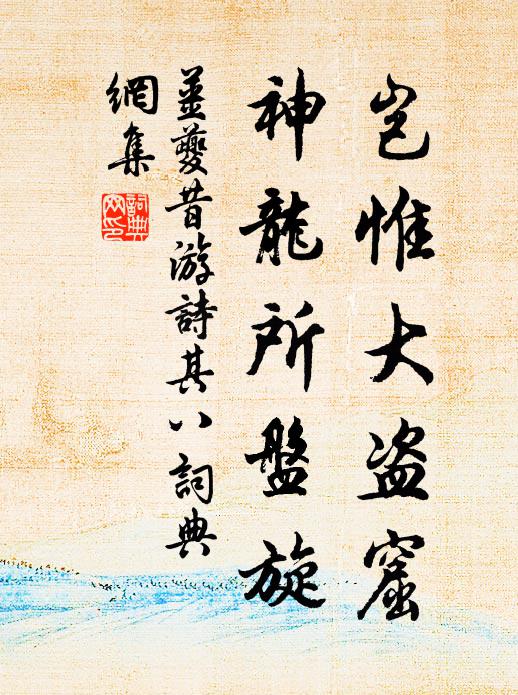 豈惟大盗窟
神龍所盤旋
姜夔昔游詩其八詞典
網集
詞典網印